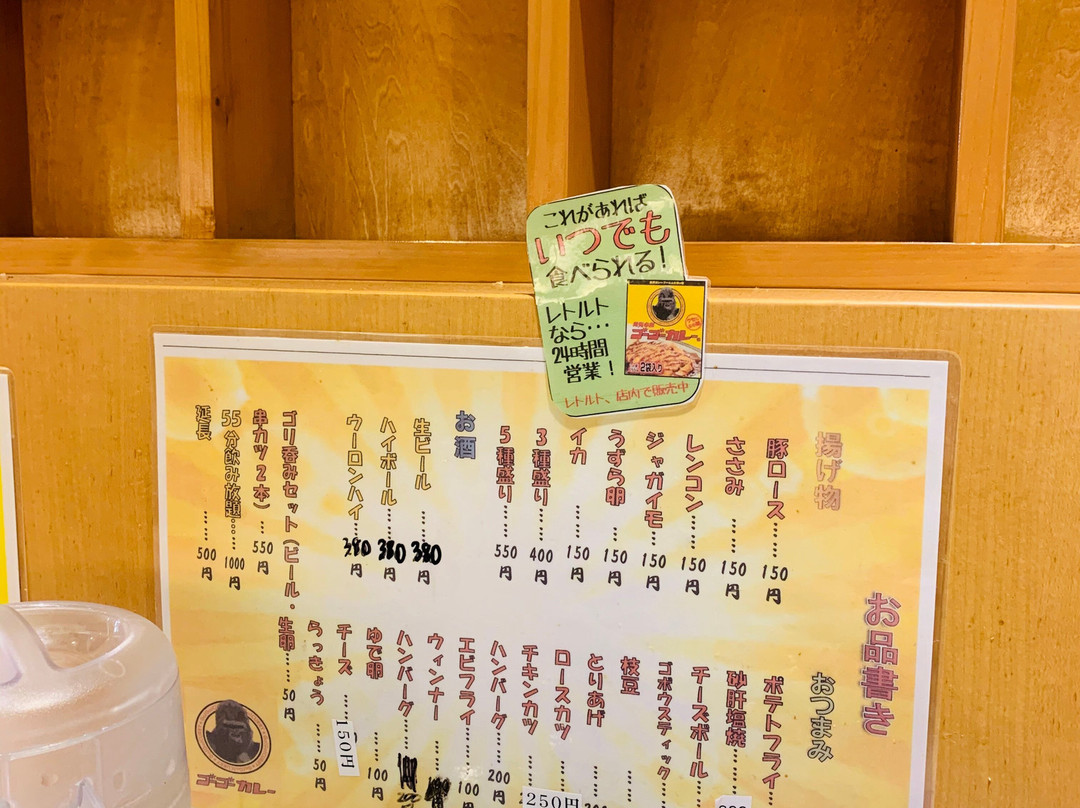 これがあれば
いつでも
食べられる!
レトルト
なら…
24時間
営業!
ゴーゴーカレー
2袋入り
レトルト、店内で販売中
お品書き
揚げ物
豚ロース……150円
ささみ……150円
レンコン……150円
ジャガイモ……150円
うずら卵……150円
イカ……150円
3種盛り……400円
5種盛り……550円
お酒
生ビール……380円
ハイボール……380円
ウーロンハイ……380円
ゴリ呑みセット(ビール・
串カツ2本)……550円
55分飲み放題……1000円
延長……500円
おつまみ
ポテトフライ
砂肝塩焼
チーズボール
ゴボウスティック
枝豆
とりあげ
ロースカツ
チキンカツ……250円
ハンバーグ……200
エビフライ……100
ウィンナー
ハンバーグ
ゆで卵……100円
チーズ……150円
らっきょう……50円
生卵……50円
ゴーゴーカレー